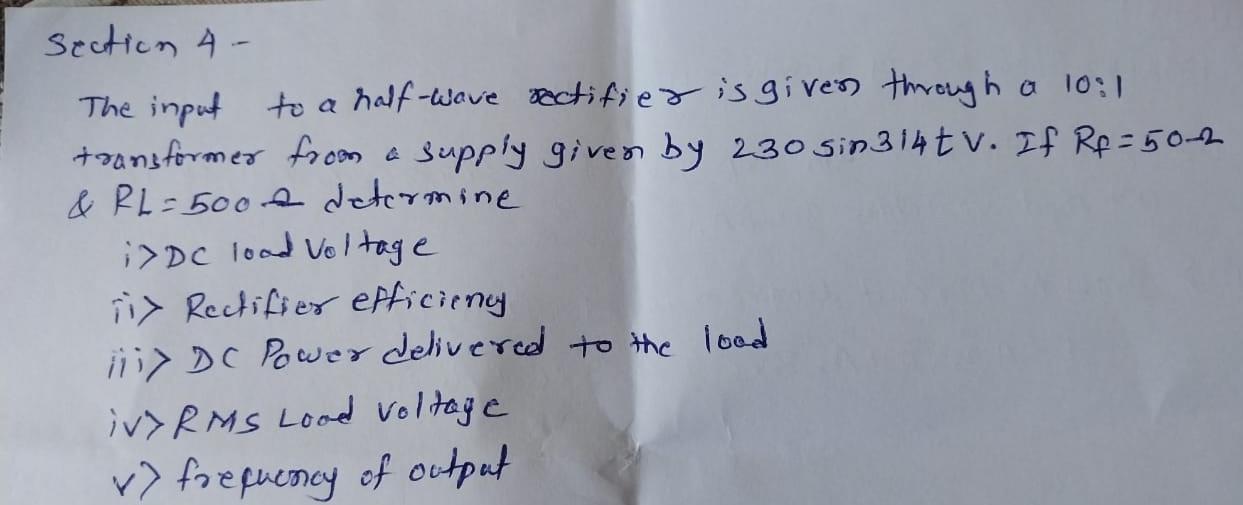 Section 4 -
The input to a half-wave rectifier is given through a 10:1
transformer from a supply given by 230 sin314t V. If Rf = 50 Ω
& RL = 500 Ω determine
i> DC load Voltage
ii> Rectifier efficiency
iii> DC Power delivered to the load
iv> RMS Load voltage
v> frequency of output